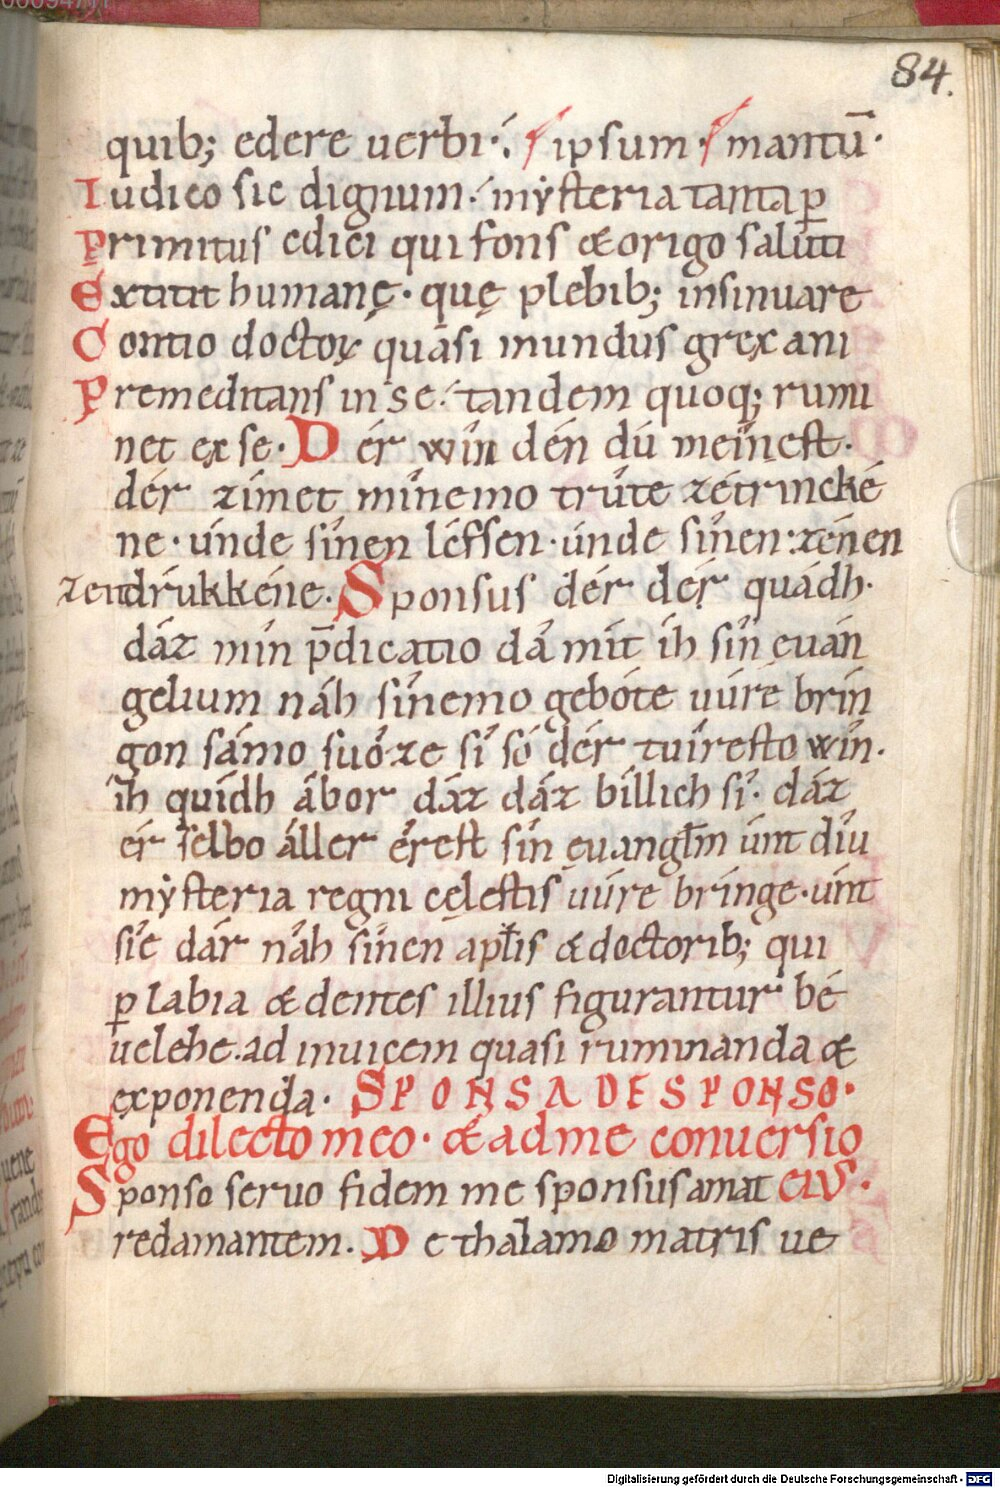 84.
quib; edere uerbi·: ipsum· mantū·
Iudico sic dignum· mẏsteria tanta ꝑ
Primitus edici qui fons & origo saluti
Extitit humanę· quę plebib; insinuare
Contio doctoꝝ quasi mundus grex ani
Premeditans in se· tandem quoq; rumi
net ex se· Dér wı́n dén dú méinest·
dér zı́met mı́nemo trúte zétrincké
ne· únde sı́nen léfsen· únde sı́nen: zénen
zendrúkkéne. Sponsus dér dér quádh·
dáz mı́n p̄dicatio dá mı́t ı́h sı́n euán
gelium náh sı́nemo gebóte uúre brı́n
gon sámo suóze sı́ só dér tuı́resto wı́n.
ı́h quı́dh ábor dáz dáz bı́llich sı́· dáz
ér selbo áller érest sı́n euangl̄m únt dı́u
mẏsteria regni cęlestis uúre brı́nge· únt
sı́e dár náh sı́nen apl̄is & doctorib; qui
ꝑ labia & dentes illius figurantur bé
uelehe. ad inuicem quasi ruminanda &
exponenda· SPONSA DE SPONSO·
Ego dilecto meo· & ad me conuersio
Sponso seruo fidem me sponsus amat eiuS·
redamantem. De thalamo matris ue
Digitalisierung gefördert durch die Deutsche Forschungsgemeinschaft · DFG